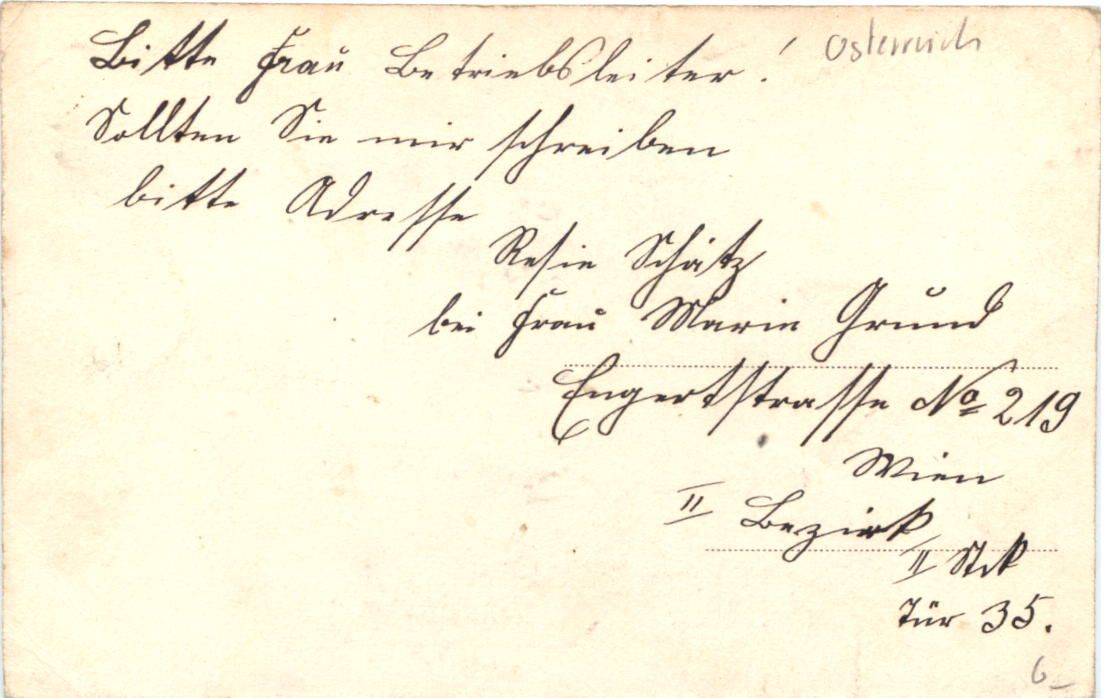 Österreich
Bitte Frau Betriebsleiter!
Sollten Sie mir schreiben
bitte Adresse
Resie Schätz
bei Frau Marie Grund
Engertstrasse No 219
Wien
II Bezirk
II Stk
Tür 35.
6_